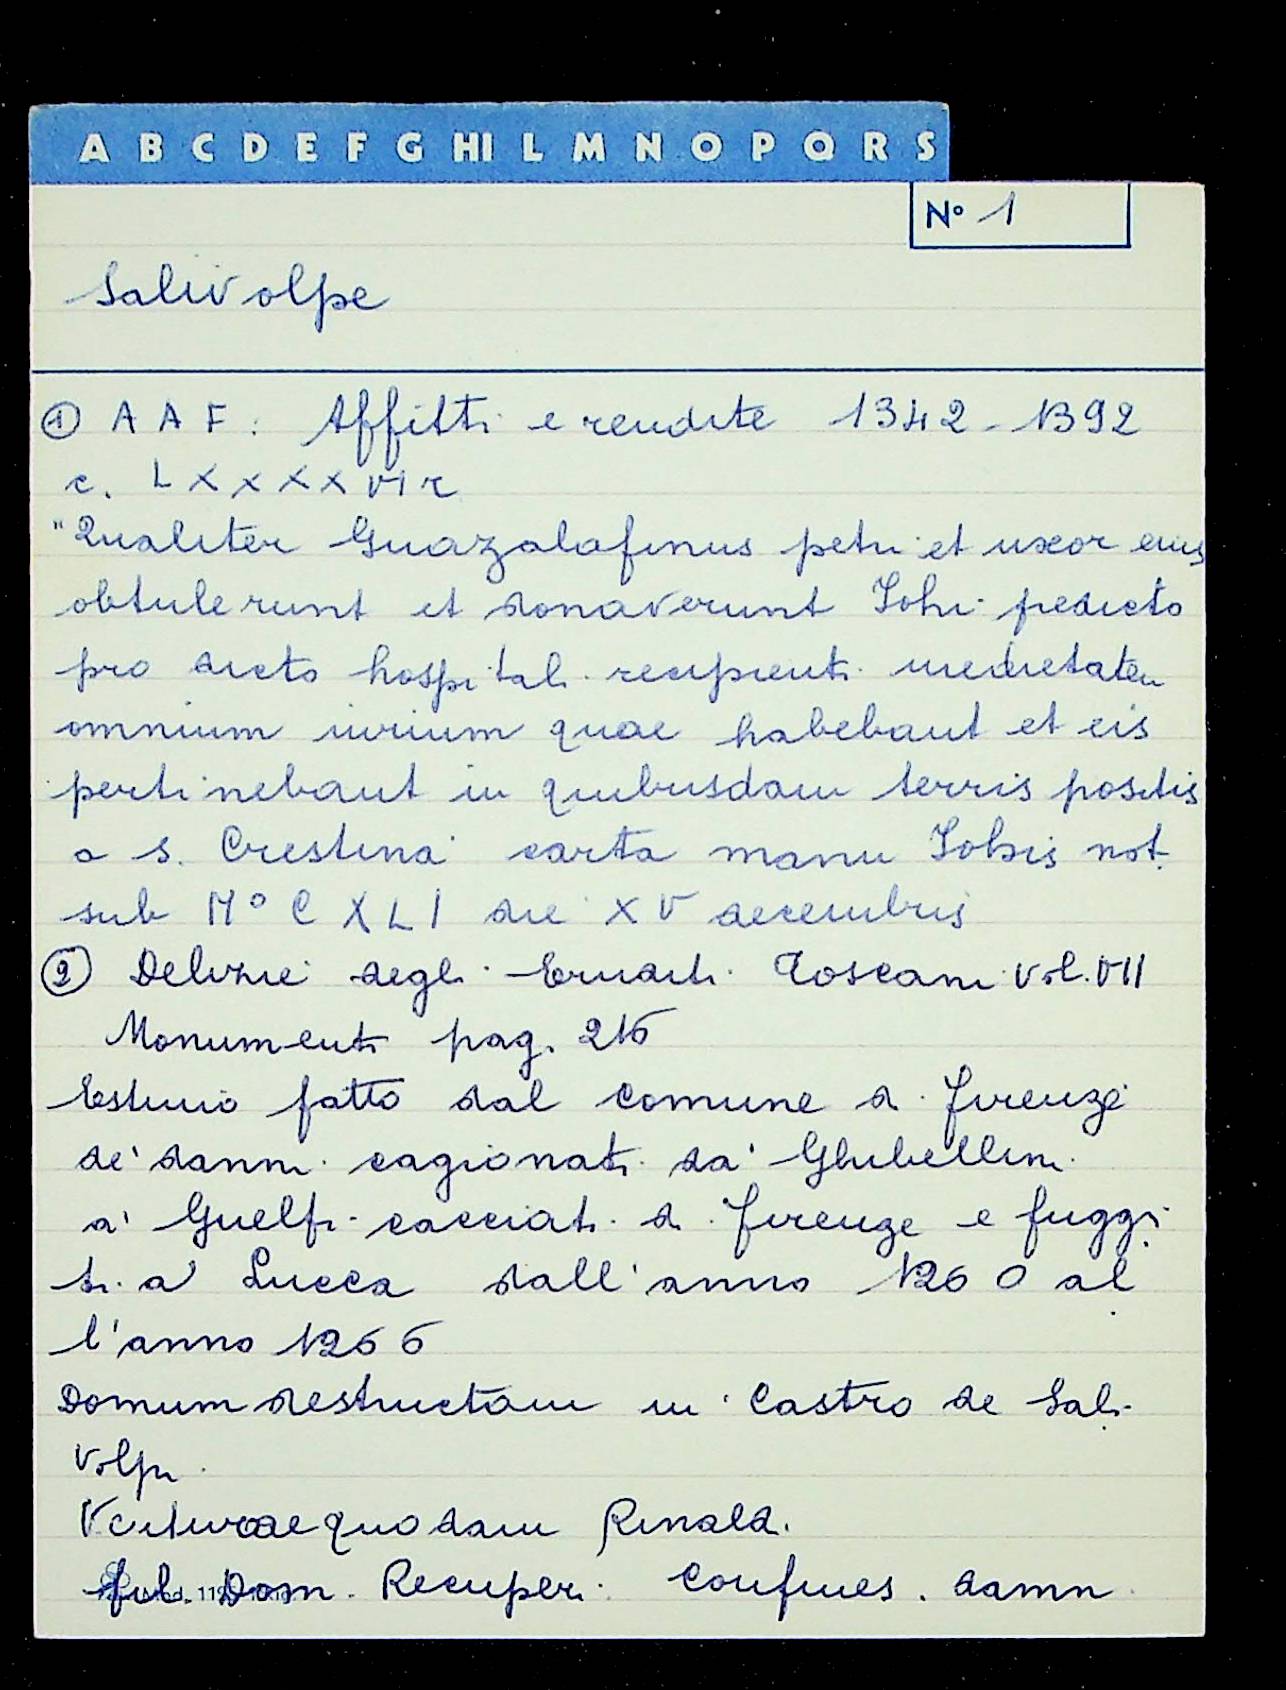 A B C D E F G HI L M N O P Q R S
N° 1
Salivolpe
① A A F. Affitti e rendite 1342-1392
c. L X X X X VI r
"Qualiter Guazalafinus petri et uxor eius
obtulerunt et donaverunt Iohi predicto
pro dicto hospitali recipienti medietatem
omnium iurium quae habebant et eis
pertinebant in quibusdam terris positis
a S. Crestina carta manu Iohis not.
sub M° C X L I die XV decembris
② Delizie degli Eruditi Toscani Vol. VII
Monumenti pag. 216
Estimo fatto dal comune di Firenze
de' danni cagionati da' Ghibellini
a' Guelfi cacciati di Firenze e fuggi
ti a Lucca dall'anno 1260 al
l'anno 1266
Domum destructam in Castro de Sali
volpi
quodam Rinald.
fil. Dom. Recuperi. Confines. damn.